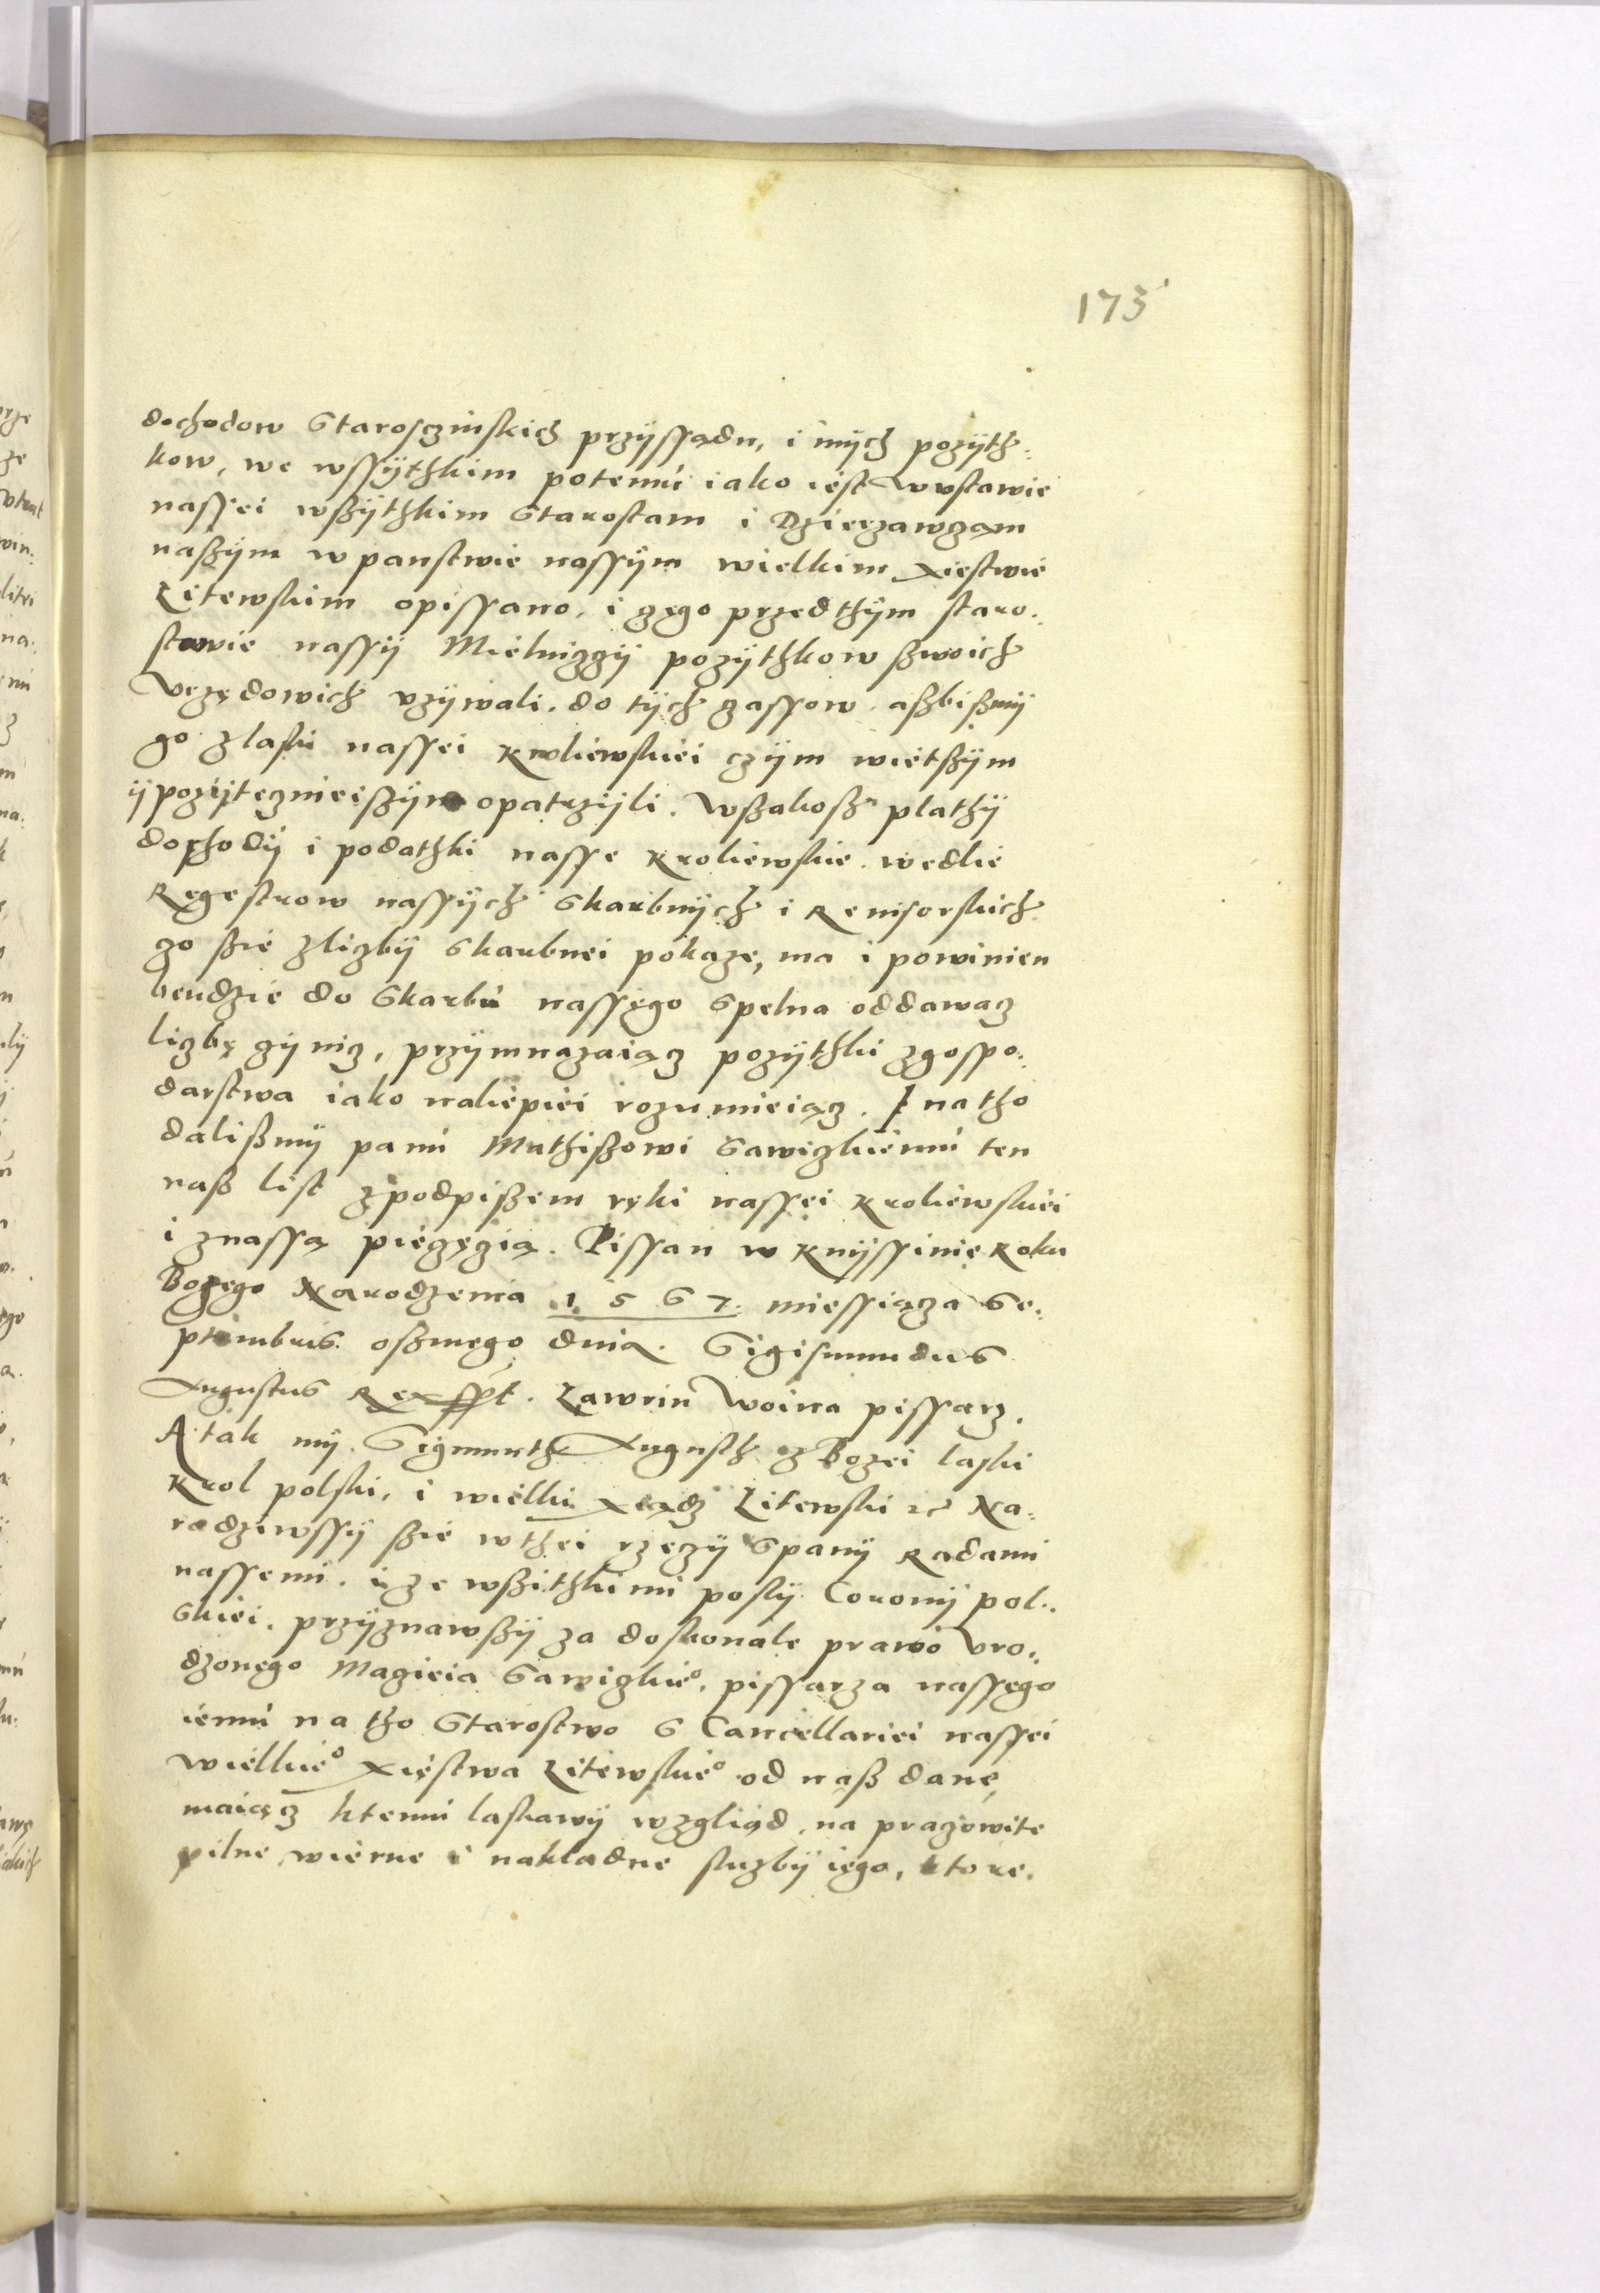 173
dochodow Starosczinskich przyssądu, i inych pozÿth-
kow, we wssÿthkim potemú iako iest wvstawie
nassei wßÿthkim Starostam i Dzierzawczam
naßÿm w panstwie nassÿm wielkim Xiestwie
Litewskim opissano, i czego przedthÿm staro-
stowie nassÿ Mielniczcÿ pozÿthkow ßwoich
Vrzędowich vzÿwali, do tÿch czassow. aßbißmÿ
go z laski nassei kroliewskiei czÿm wietßÿm
ÿ pozÿtecznieißÿm opatrzÿli. Wßakoß plathÿ
dochodÿ i podathki nasse kroliewskie. wedlie
Regestrow nassÿch Skarbnÿch i Revisorskich
czo ßie z liczbÿ Skarbnei pokaze, ma i powinien
bendzie do Skarbú nassego Spelna oddawacz
liczbę czÿnicz, przÿmnazaiącz pozÿthki z gospo-
darstwa iako naliepiei rozumieiącz. I na tho
dalißmÿ panú Mathißowi Sawiczkiemú ten
naß list z podpißem ręki nassei kroliewskiei
i z nassą pieczęcią. Pissan w Knÿssinie Roku
Bozego Narodzenia 1567. miessiącza Se-
ptembris oßmego dnia. Sigismundus
Augustus Rex sspt. Lawrin Woina pissarz.
A tak mÿ. Sigmunth Augusth z Bozei laski
krol polski, i wielki Xiądz Litewski etc Na-
radziwssÿ ßie w thei rzeczÿ S panÿ Radami
nassemi. i ze wßithkimi poslÿ Coronÿ pol-
skiei. przÿznawßÿ za doskonale prawo vro-
dzonego Macieia Sawiczkieº, pissarza nassego
iemú na tho Starostwo S Cancellariei nassei
wielkieº Xięstwa Litewskieº od naß dane,
maiącz ktemú laskawÿ wzgliąd, na praczowite
pilne, wierne i nakladne sluzbÿ iego, ktore.